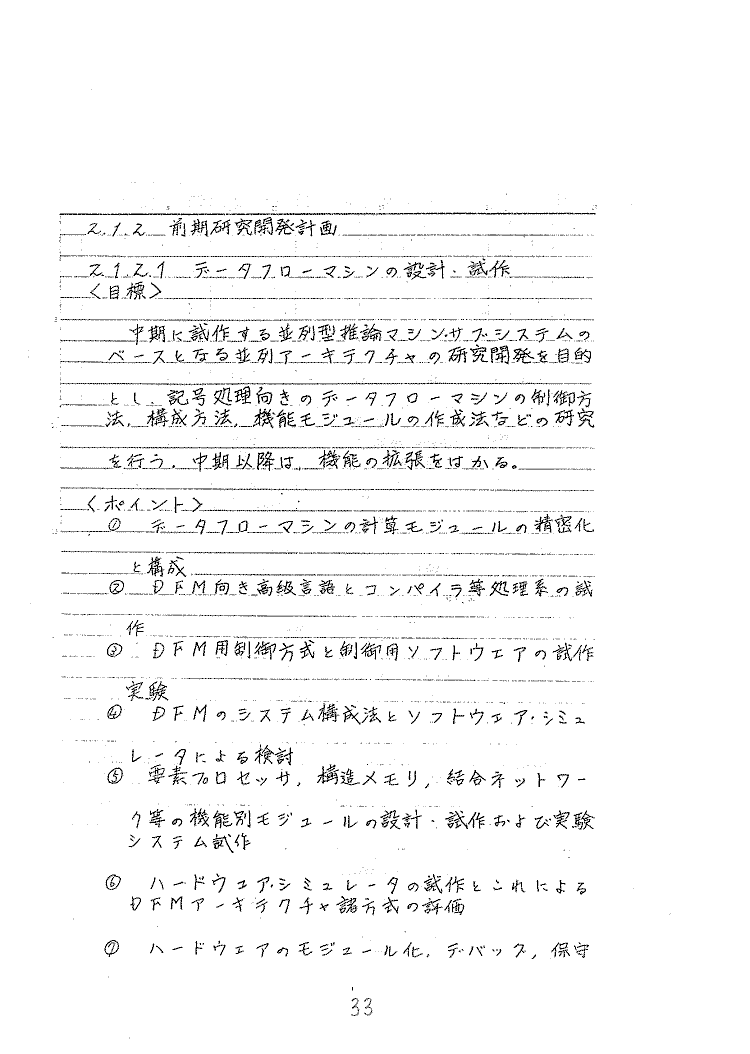 2.1.2 前期研究開発計画
2.1.2.1 データフローマシンの設計・試作
〈目標〉
中期に試作する並列型推論マシン・サブ・システムの
ベースとなる並列アーキテクチャの研究開発を目的
とし、記号処理向きのデータフローマシンの制御方
法、構成方法、機能モジュールの作成法などの研究
を行う。中期以降は、機能の拡張をはかる。
〈ポイント〉
① データフローマシンの計算モジュールの精密化
と構成
② DFM向き高級言語とコンパイラ等処理系の試
作
③ DFM用制御方式と制御用ソフトウェアの試作
実験
④ DFMのシステム構成法とソフトウェア・シミュ
レータによる検討
⑤ 要素プロセッサ，構造メモリ，結合ネットワー
ク等の機能別モジュールの設計・試作および実験
システム試作
⑥ ハードウェア・シミュレータの試作とこれによる
DFMアーキテクチャ諸方式の評価
⑦ ハードウェアのモジュール化，デバッグ，保守
33